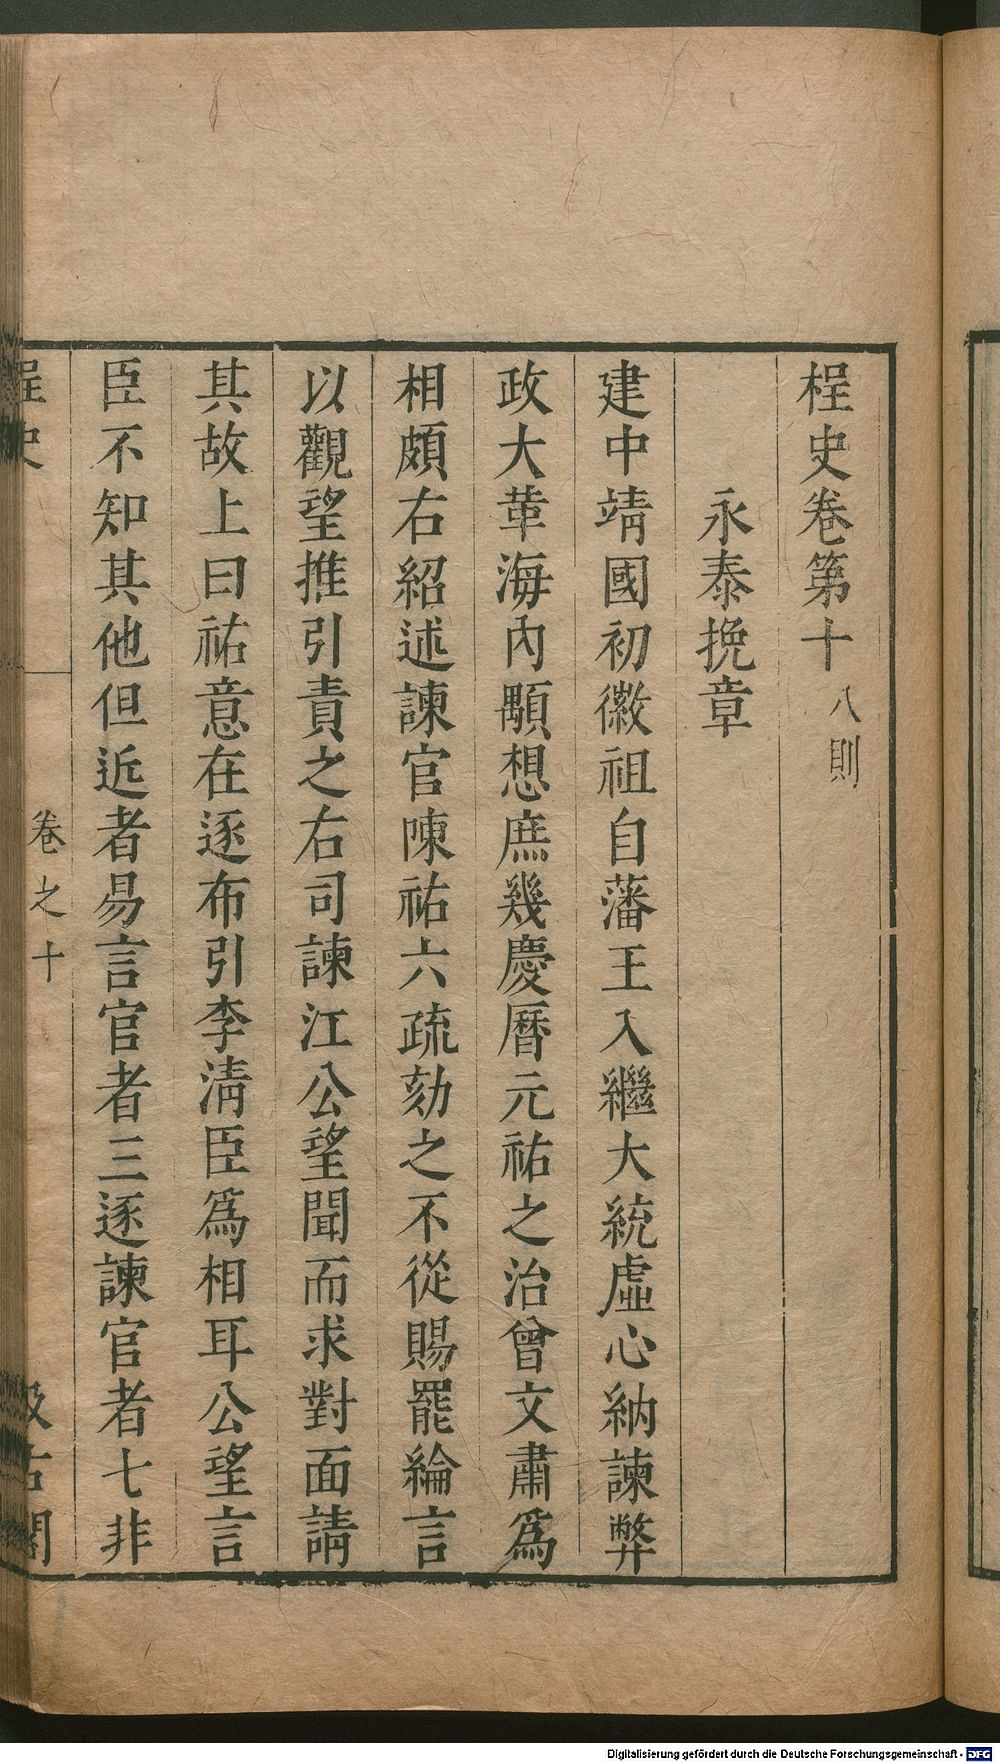 桯史卷第十 八則
永泰挽章
建中靖國初徽祖自藩王入繼大統虛心納諫弊
政大革海內顒想庶幾慶曆元祐之治曾文肅爲
相頗右紹述諫官陳祐六疏劾之不從賜罷綸言
以觀望推引責之右司諫江公望聞而求對面請
其故上曰祐意在逐布引李清臣爲相耳公望言
臣不知其他但近者易言官者三逐諫官者七非
桯史 卷之十 汲古閣
Digitalisierung gefördert durch die Deutsche Forschungsgemeinschaft - DFG